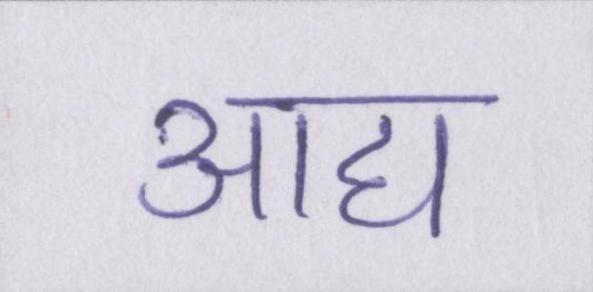 आद्य